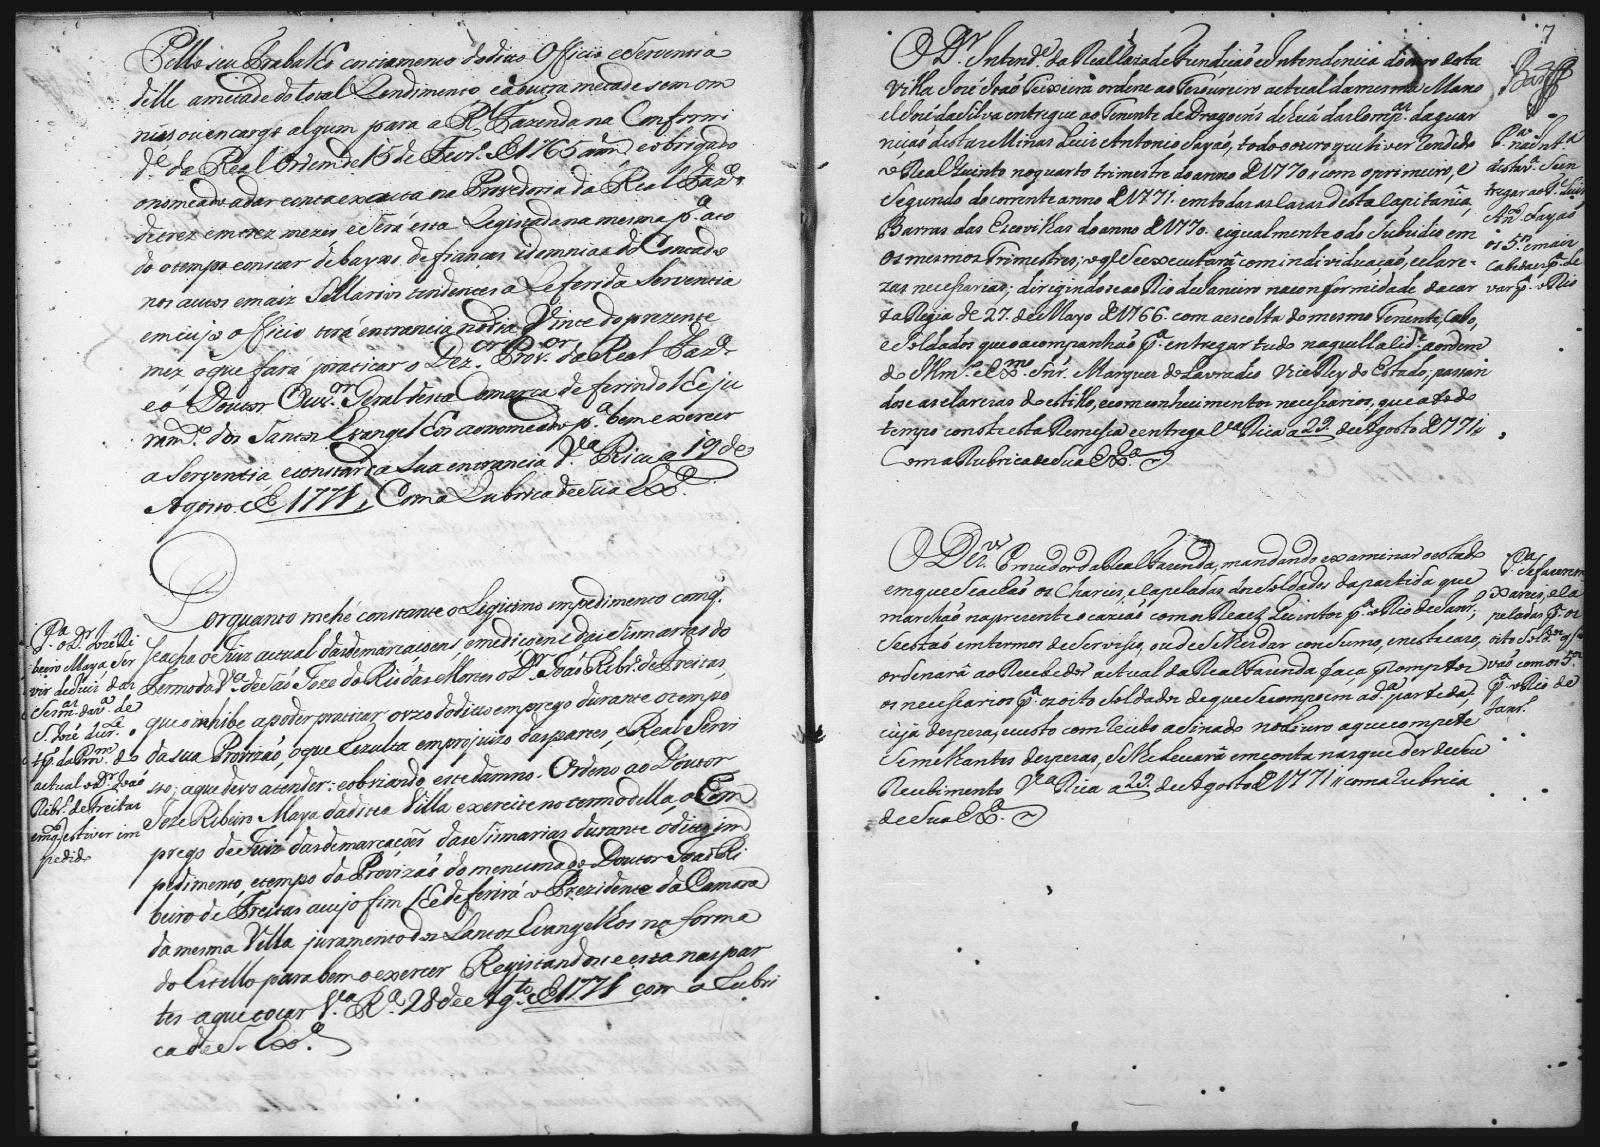 Pello seu trabalho corriamento dodito Officio eServentia
delle ametade do total Rendimento, eaoutra metade sem om
nus ou encargo algum para a Rl. Fazenda na Conformi
de. da Real Ordem de 15 de Fevro. de 1765 eobrigado
onomeado adar conta exacta na Provedoria da Real Fazda.
de trez em trez mezes eSerá esta Registada na mesma pa. ato
do otempo constar
nos autos emais Sellarios tendentes a Referida Serventia
em cujo officio terá entrancia no dia Vinte do prezente
mez oque fará praticar o Dezor. Provor. da Real Fazda.
eo Doutor Ouvor. Geral desta Comarca deferindolhe ju
ramto. dos Santos Evangelhos aonomeado pa. bem exercer
a Serventia econstar a sua entrancia Va. Rica a 19 de
Agosto de 1771, Com a Rubrica de Sua Exa.
Porquanto mehé constante o Legitimo empedimento comq.
seacha o Juiz actual dasdemarcaçoens, emediçoens das Sismarias do
Termo da Va. de Saõ Joze do Rio das Mortes o Dr. Joaõ Ribro. de Freitas,
que oinhibe apoder praticar o uzo dodito emprego durante otempo
da sua Provizaõ, oque Rezulta emprojuizo daspartes, e Real Servi
sso; aque devo atender: eobviando estedamno. Ordeno ao Doutor
Joze Ribeiro Maya dadita Villa exercite no termo della, o Em
prego de Juiz dasdemarcaçoẽs das Sismarias durante odito im
pedimento, etempo da Provizaõ do mencionado Doutor Joaõ Ri
beiro de Freitas acujo fim lhe deferirá o Prezidente da Camara
da mesma Villa juramento dos Santos Evangelhos na forma
do Estillo para bem oexercer Registandose esta nas par
tes aque tocar Va. Ra. 28 de Agto. de 1771 com a Rubri
ca de S. Exa.
Pa. o Dr. José Ri
beiro Maya Ser
vir de Juiz das
Sesmar. da Va. de
S. José dur.te
o tp. da Prm. do
actual o Dr. Joaõ
Ribro. de Freitas
emq. estiver im
pedido
7
O Dr. Intende. da Real Caza de Fundiçaõ e Intendencia do ouro desta
Villa José Joaõ Teixeira ordene ao Tesoureiro actual damesma Mano
el José da Silva entregue ao Tenente de Dragoens de huã das Compas. da guar
niçaõ destas Minas Luis Antonio Sayaõ, todo o ouro que tiver rendido
o Real Quinto no quarto trimestre do anno de 1770 // com o primeiro, e
Segundo do corrente anno de 1771. em todas as Cazas desta Capitania,
Barras das Escovilhas do anno de 1770. e igualmente o do Subsidio em
os mesmos Trimestres; o q. Se executará com individuaçaõ, e clare-
zas necessarias; dirigindose ao Rio de Janeiro na conformidade da car
ta Regia de 27. de Mayo de 1766. com a escolta do mesmo Tenente, Cabo,
e Soldados que o acompanhaõ pa. entregar tudo naquella Cide. a ordem
do Illmo. e Exmo. Snr. Marquez do Lavradio Vice Rey do Estado, passan
dose as clarezas do estillo, e com conhecimentos necessarios, que a todo
tempo conste esta Remessa e entrega Va. Rica a 22 de Agosto de 1771 //
Com a Rubrica de Sua Exa.
Pa. na Inta.
desta Va. Se en
tregar ao Te. Luis
Anto. Sayaõ
os 5os. e mais
Cabedaes pa. le
var pa. o Rio
O Dezor. Provedor da Real Fazenda, mandando examinar o estado
em que Se achaõ os Chareis, e Capeladas dos Soldados da partida que
marchaõ na prezente ocaziaõ com os Reaes Quintos pa. o Rio de Janro.;
Se estaõ em termos de Serviço, ou de Se lhes dar consumo, e neste cazo,
ordenará ao Recebedor actual da Real Fazenda faça promptos
os necessarios pa. os oito Soldados de que Se compoem a da. partida;
cuja despeza, e custo com Recibo asinado no Livro a que compete
Semelhantes despezas, Se lhe levará em conta nas que der do Seu
Recebimento Va. Rica a 22. de Agosto de 1771 // com a rubrica
de Sua Exa.
Pa. Se fazerem
Xareis, e Ca
peladas pa. os
oito Soldos. q.
vaõ com os 5os.
pa. o Rio de
Janro.